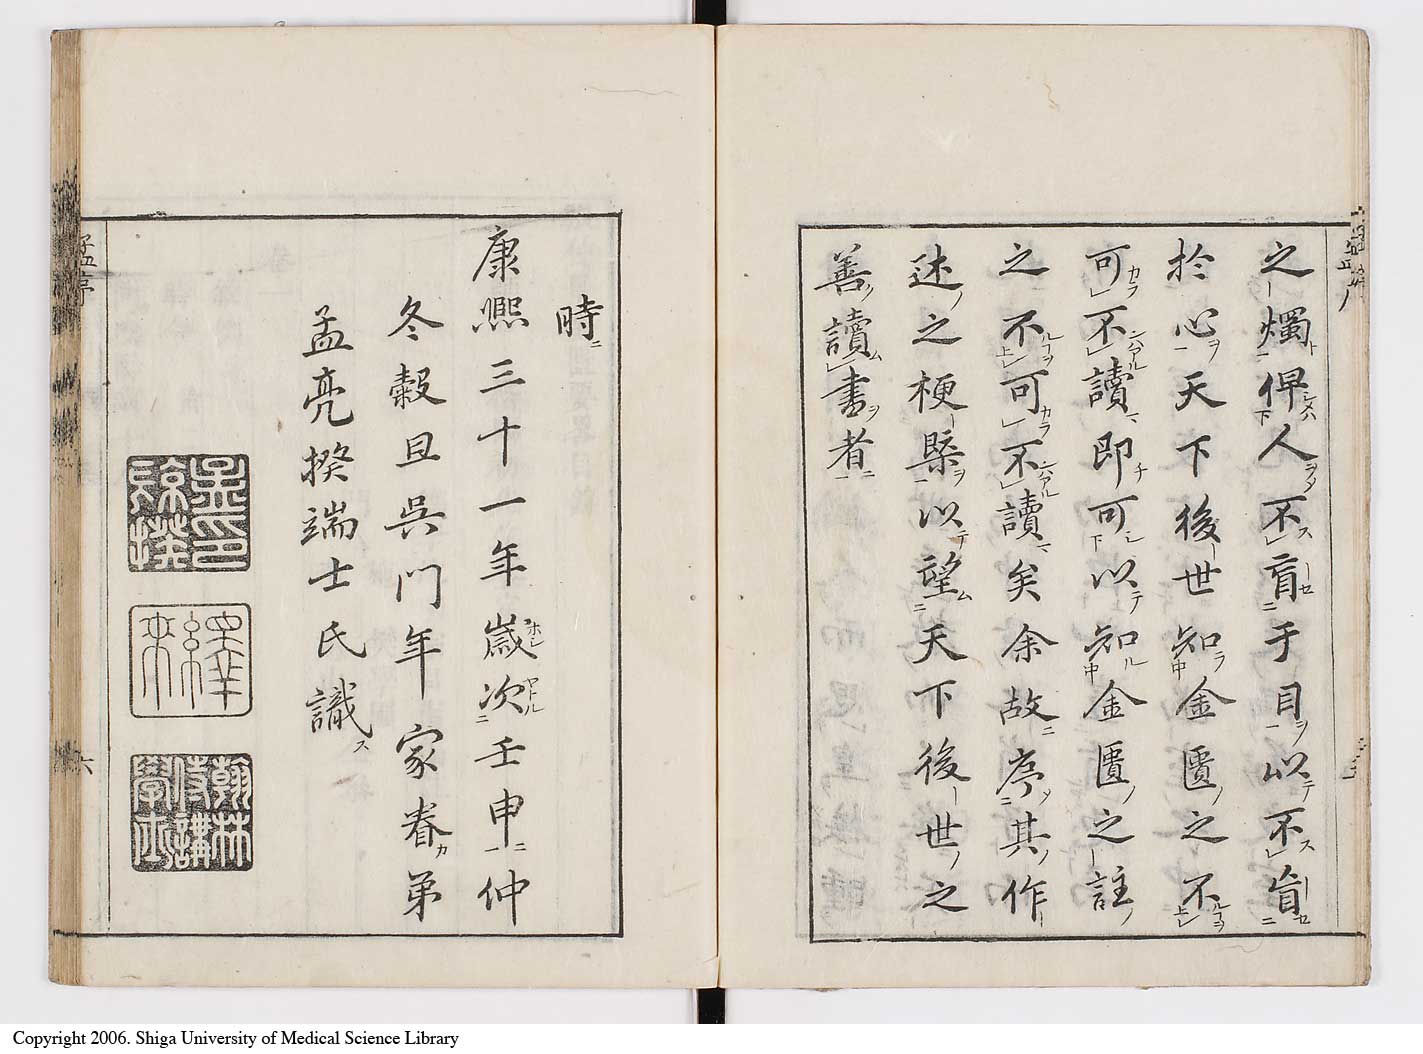 之燭俾人不盲于目以不盲
於心天下後世知金匱之不
可不讀即可以知金匱之註
之不可不讀矣余故序其作
述之梗槩以望天下後世之
善讀書者
時
康熙三十一年歲次壬申仲
冬穀旦吳門年家眷弟
孟亮揆端士氏識
孟亮揆印
繹來
翰林侍講學士
六
Copyright 2006. Shiga University of Medical Science Library